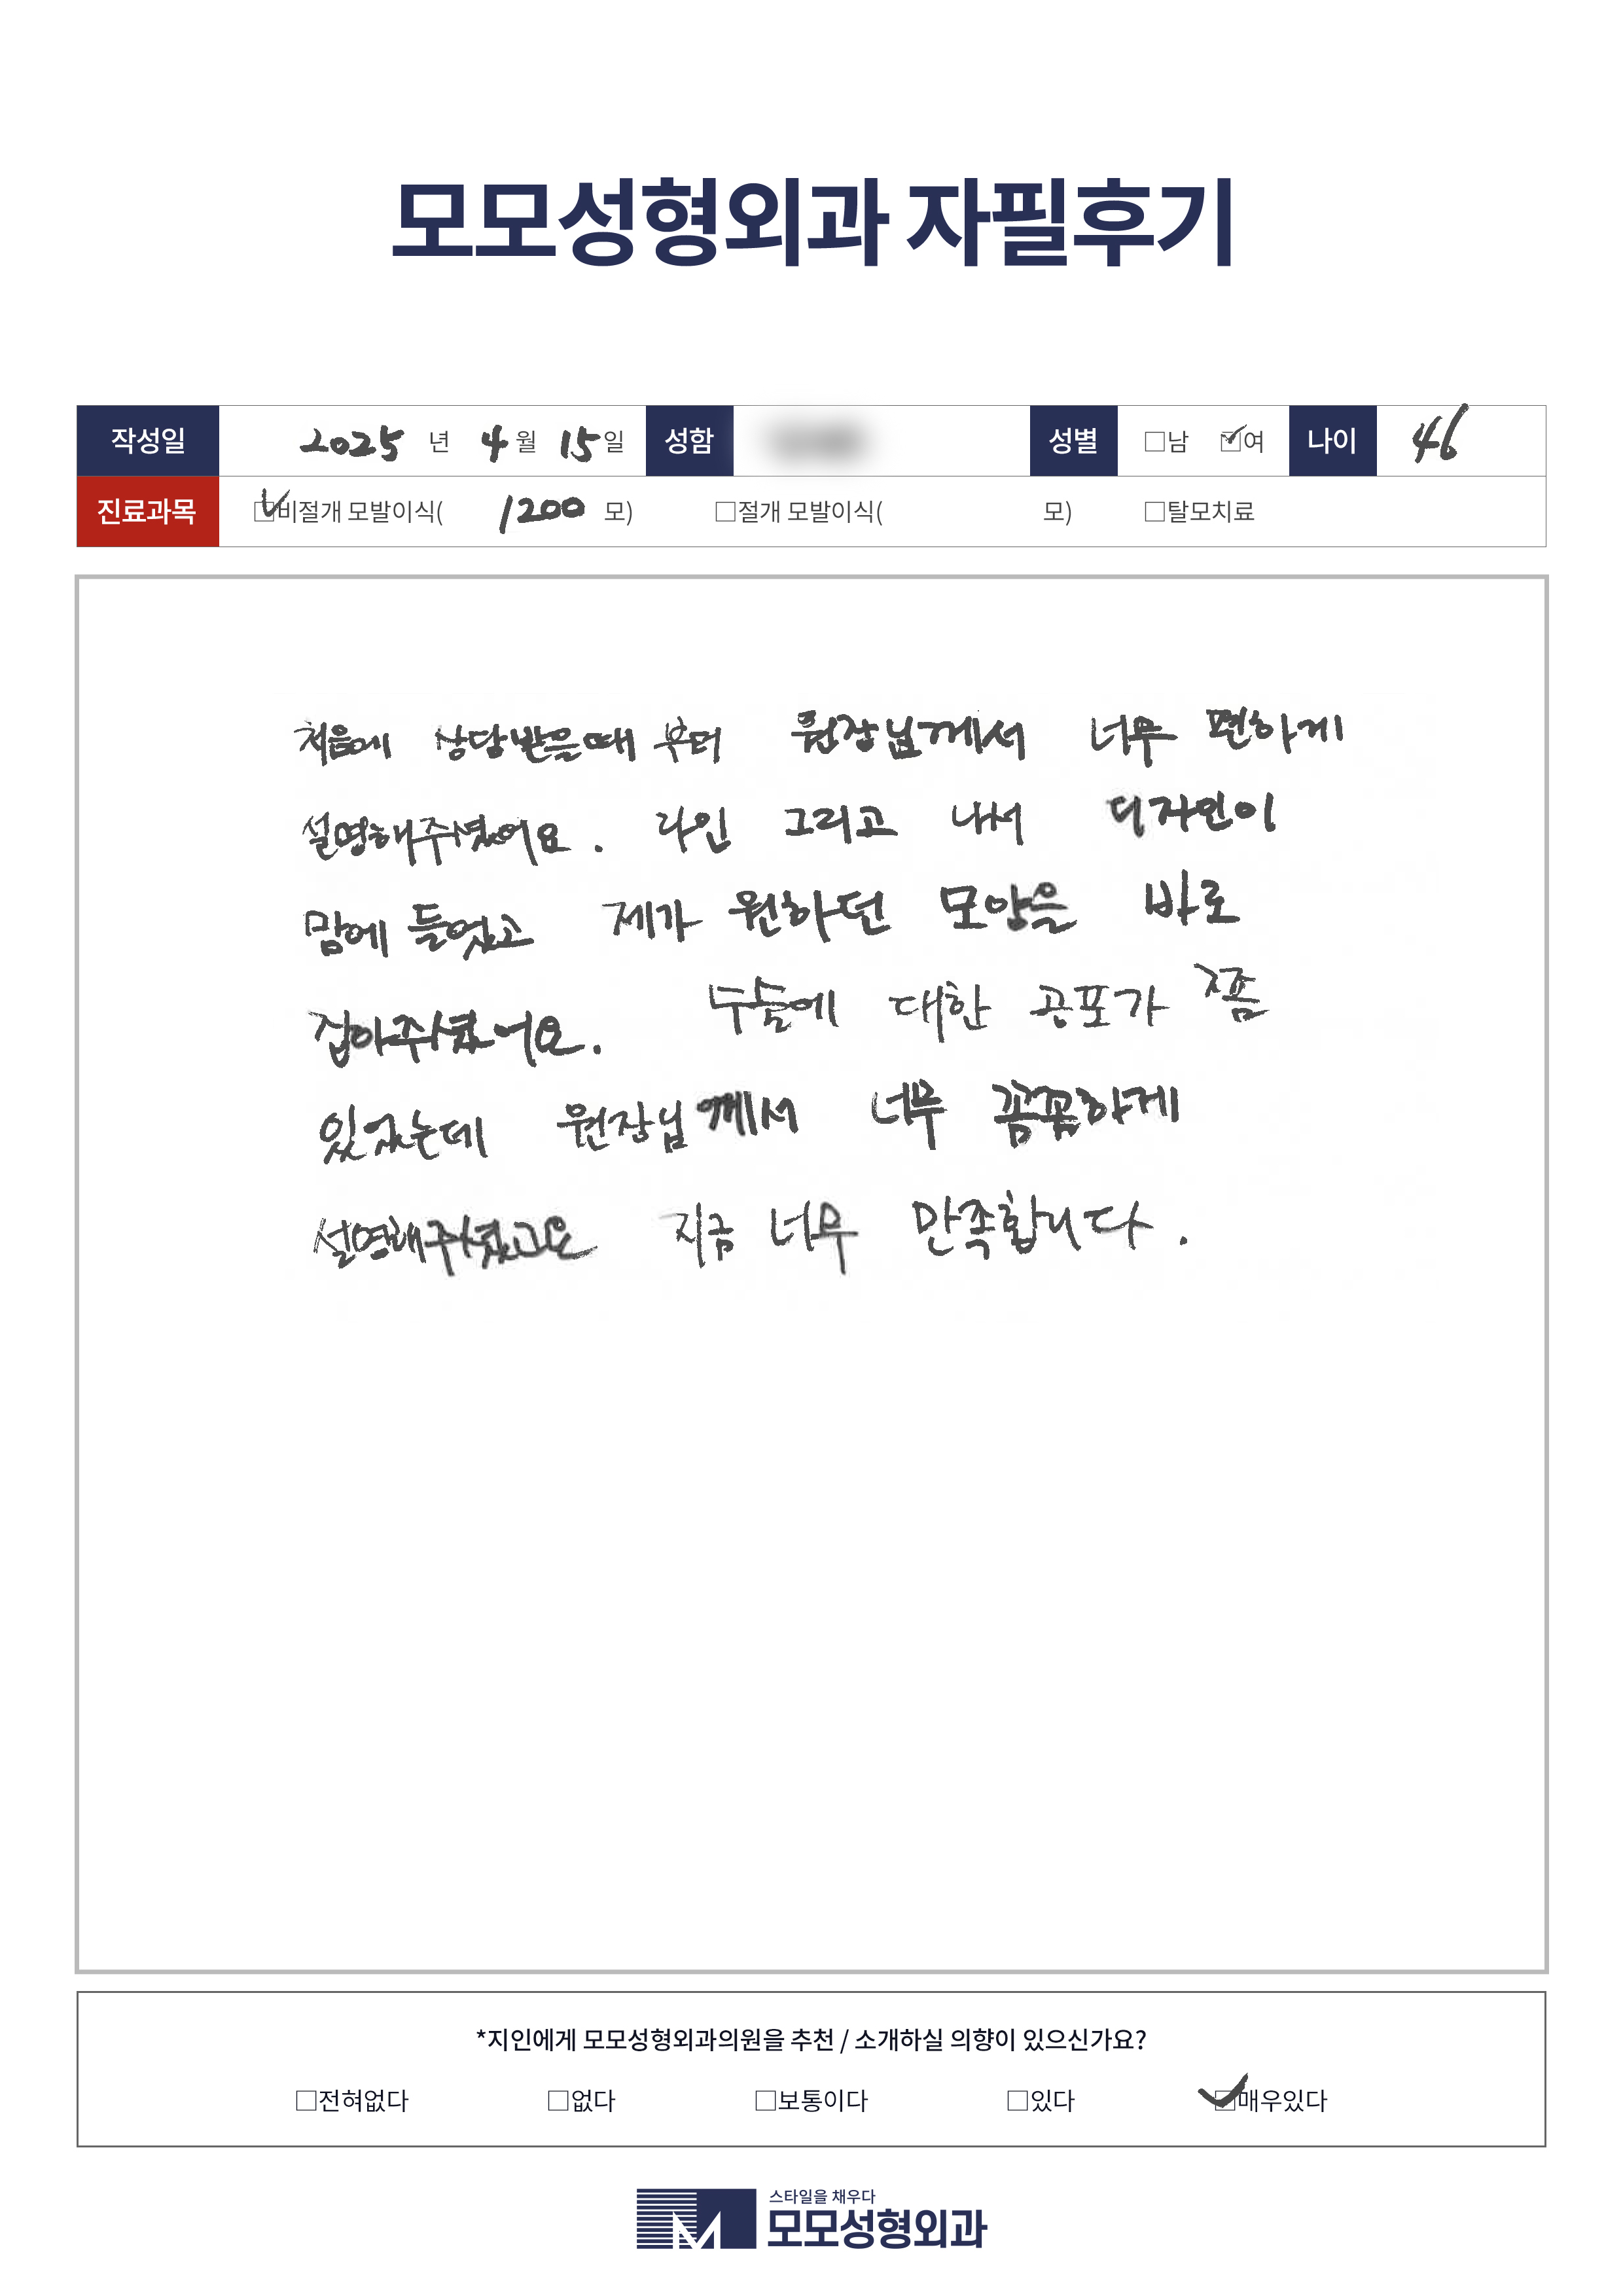 모모성형외과 자필후기
작성일 2025 년 4 월 15 일 성함 성별 □남 ☑여 나이 46
진료과목 ☑비절개 모발이식( 1200 모) □절개 모발이식( 모) □탈모치료
처음에 상담받을때 부터 원장님께서 너무 편하게
설명해주셨어요. 라인 그리고 내서 디자인이
맘에 들었고 제가 원하던 모양을 바로
잡아주셨어요. 수술에 대한 공포가 쫌
있었는데 원장님께서 너무 꼼꼼하게
설명해주셨고요 지금 너무 만족합니다.
*지인에게 모모성형외과의원을 추천 / 소개하실 의향이 있으신가요?
□전혀없다 □없다 □보통이다 □있다 ☑매우있다
스타일을 채우다
모모성형외과